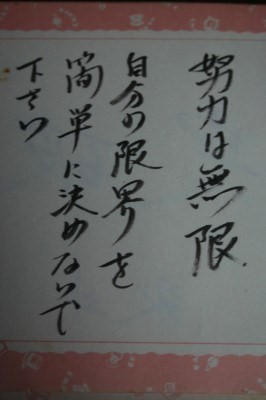 努力は無限
自分の限界を
簡単に決めないで
下さい